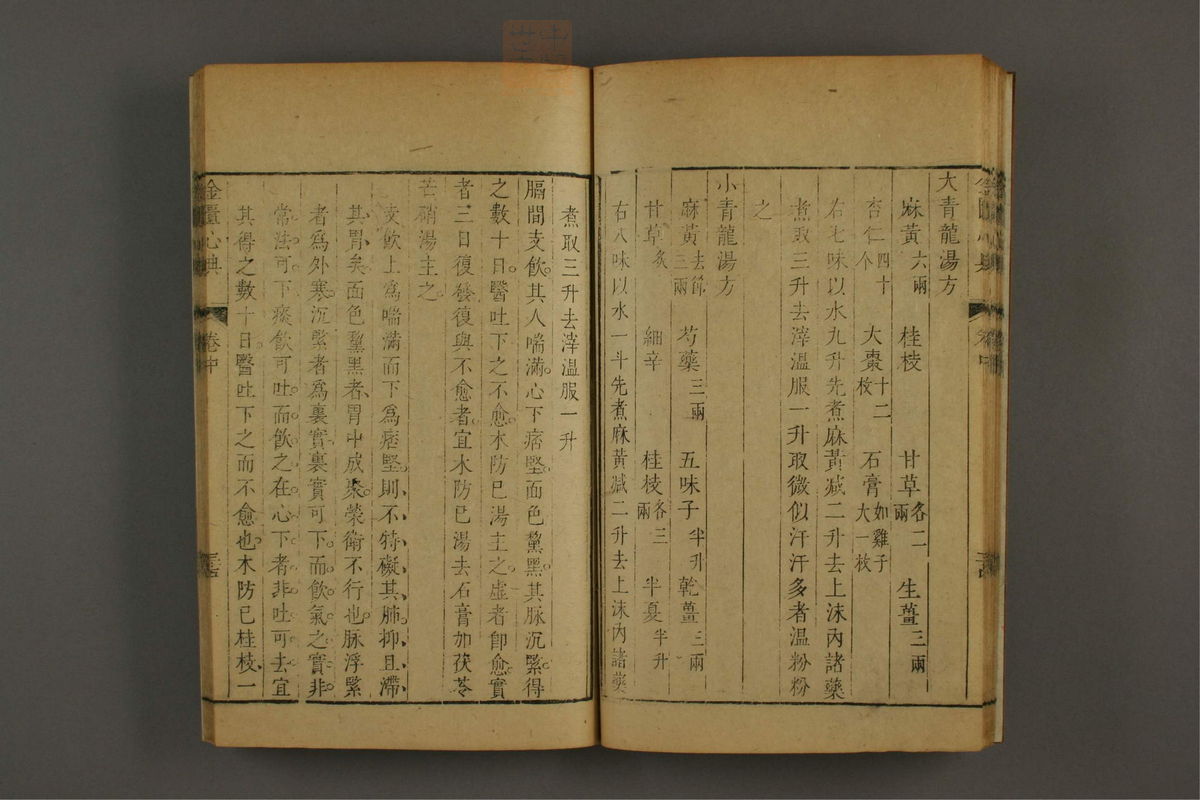 大青龍湯方
麻黃六兩 桂枝 甘草各二兩 生薑三兩
杏仁四十个 大棗十二枚 石膏如雞子大一枚
右七味以水九升先煮麻黃減二升去上沫內諸藥
煮取三升去滓溫服一升取微似汗汗多者溫粉粉
之
小青龍湯方
麻黃去節三兩 芍藥三兩 五味子半升 乾薑三兩
甘草炙 細辛 桂枝各三兩 半夏半升
右八味以水一斗先煮麻黃減二升去上沫內諸藥
煮取三升去滓溫服一升
膈間支飲其人喘滿心下痞堅面色黧黑其脉沉緊得
之數十日醫吐下之不愈木防已湯主之虛者卽愈實
者三日復發復與不愈者宜木防已湯去石膏加茯苓
芒硝湯主之
支飲上爲喘滿而下爲痞堅則不特礙其肺抑且滯
其胃矣面色黧黑者胃中成聚榮衛不行也脉浮緊
者爲外寒沉緊者爲裏實裏實可下而飲氣之實非
常法可下痰飲可吐而飲之在心下者非吐可去宜
其得之數十日醫吐下之而不愈也木防已桂枝一
金匱心典 卷中